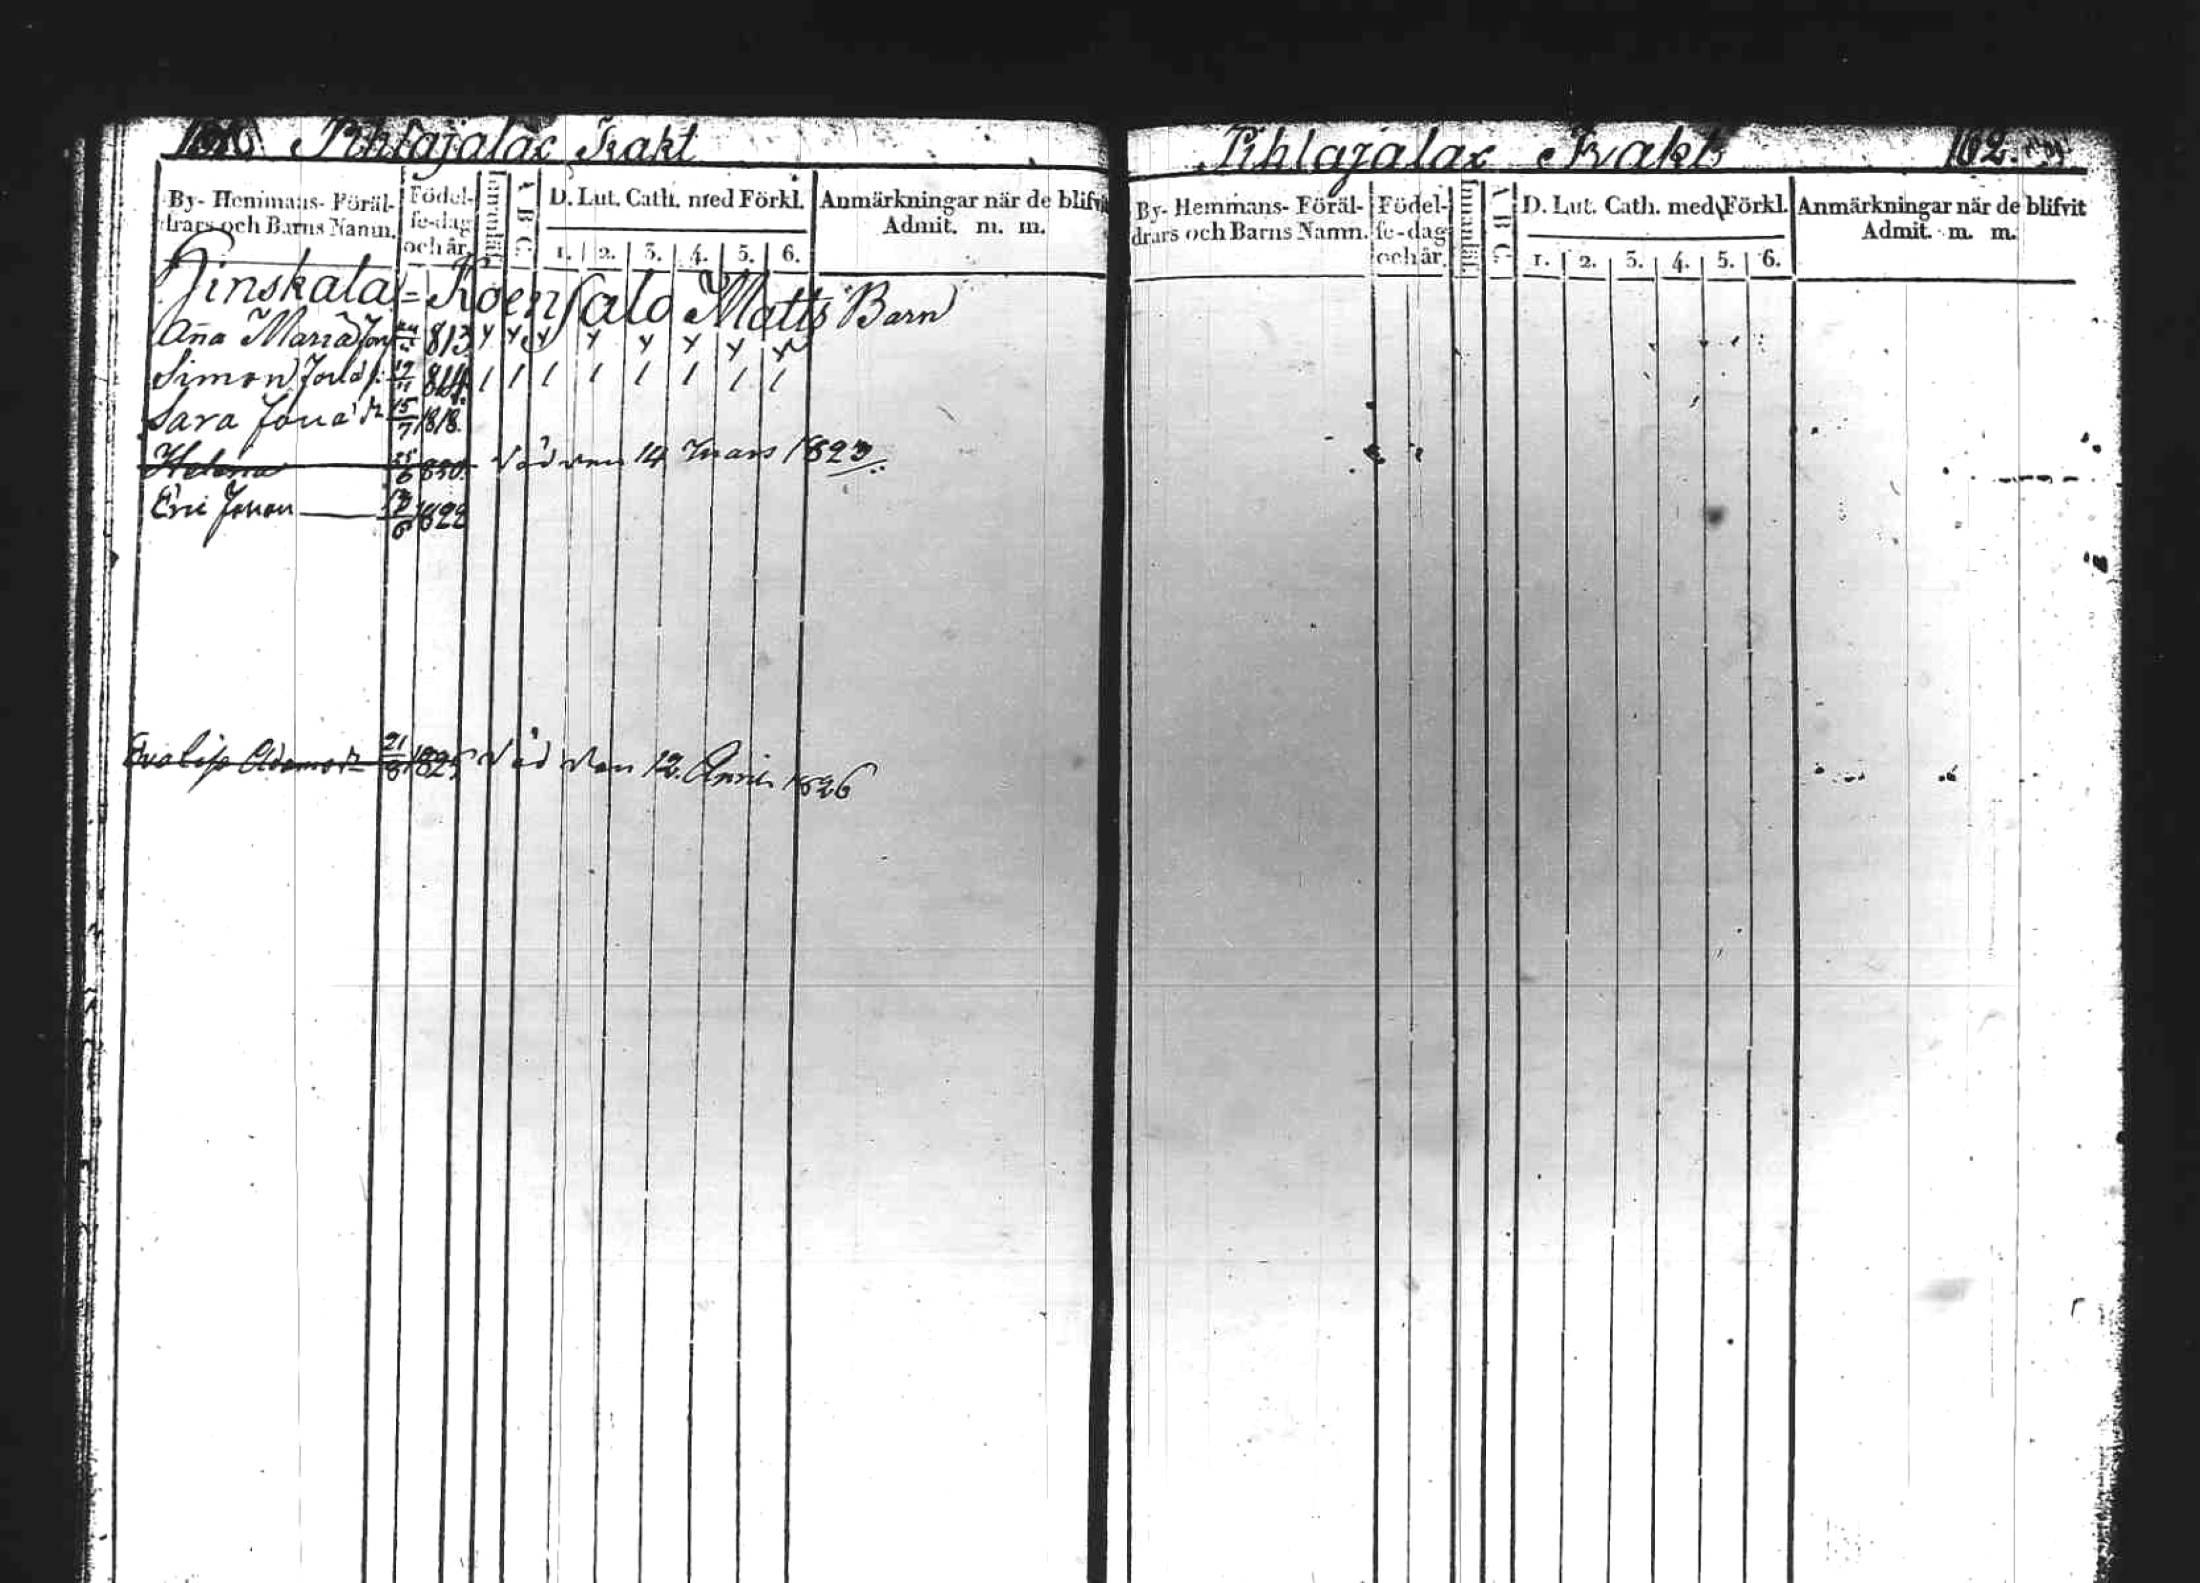 Pihlajalax Trakt
By- Hemmans- Föräl-
drars och Barns Namn.
Födel-
se-dag
och år.
Innanläs.
A B C
D. Lut. Cath. med Förkl.
1. 2. 3. 4. 5. 6.
Anmärkningar när de blifvit
Admit. m. m.
Hinskala = Koensalo Matts Barn
Aña Maria 813
Simon 19/11 814
Sara 15/7 1818
Helena död den 14 Mars 1823
Eric Johan 1822
Eva Lisa Adamsdr 21/8 1825 död den 12 April 1826
Pihlajalax Trakt 162.
By- Hemmans- Föräl-
drars och Barns Namn.
Födel-
se-dag
och år.
Innanläs.
A B C
D. Lut. Cath. med Förkl.
1. 2. 3. 4. 5. 6.
Anmärkningar när de blifvit
Admit. m. m.